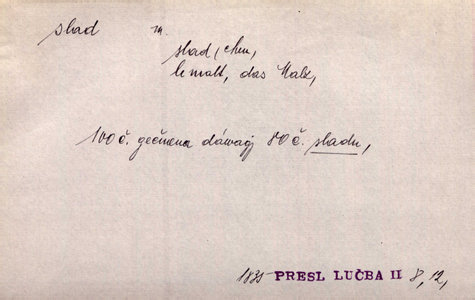 slad m.
slad, chm,
le malt, das Malz,
100 č. gečmena dáwagj 80 č. sladu,
1835 PRESL LUČBA II 8, 12,